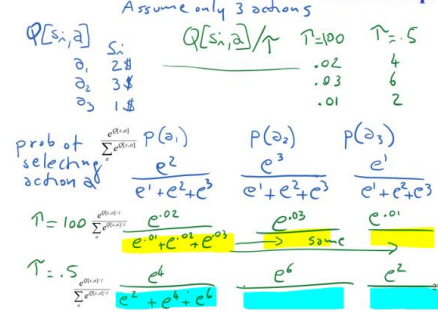 Assume only 3 actions
Q[si,a] si Q[si,a]/τ τ=100 τ=.5
a1 2$ .02 4
a2 3$ .03 6
a3 1$ .01 2
prob of selecting action a e^Q[s,a] / Σa e^Q[s,a] P(a1) P(a2) P(a3)
e^2 / e^1+e^2+e^3 e^3 / e^1+e^2+e^3 e^1 / e^1+e^2+e^3
τ=100 e^Q[s,a]/τ / Σa e^Q[s,a]/τ e^.02 / e^.01+e^.02+e^.03 e^.03 same e^.01
τ=.5 e^Q[s,a]/τ / Σa e^Q[s,a]/τ e^4 / e^2+e^4+e^6 e^6 e^2